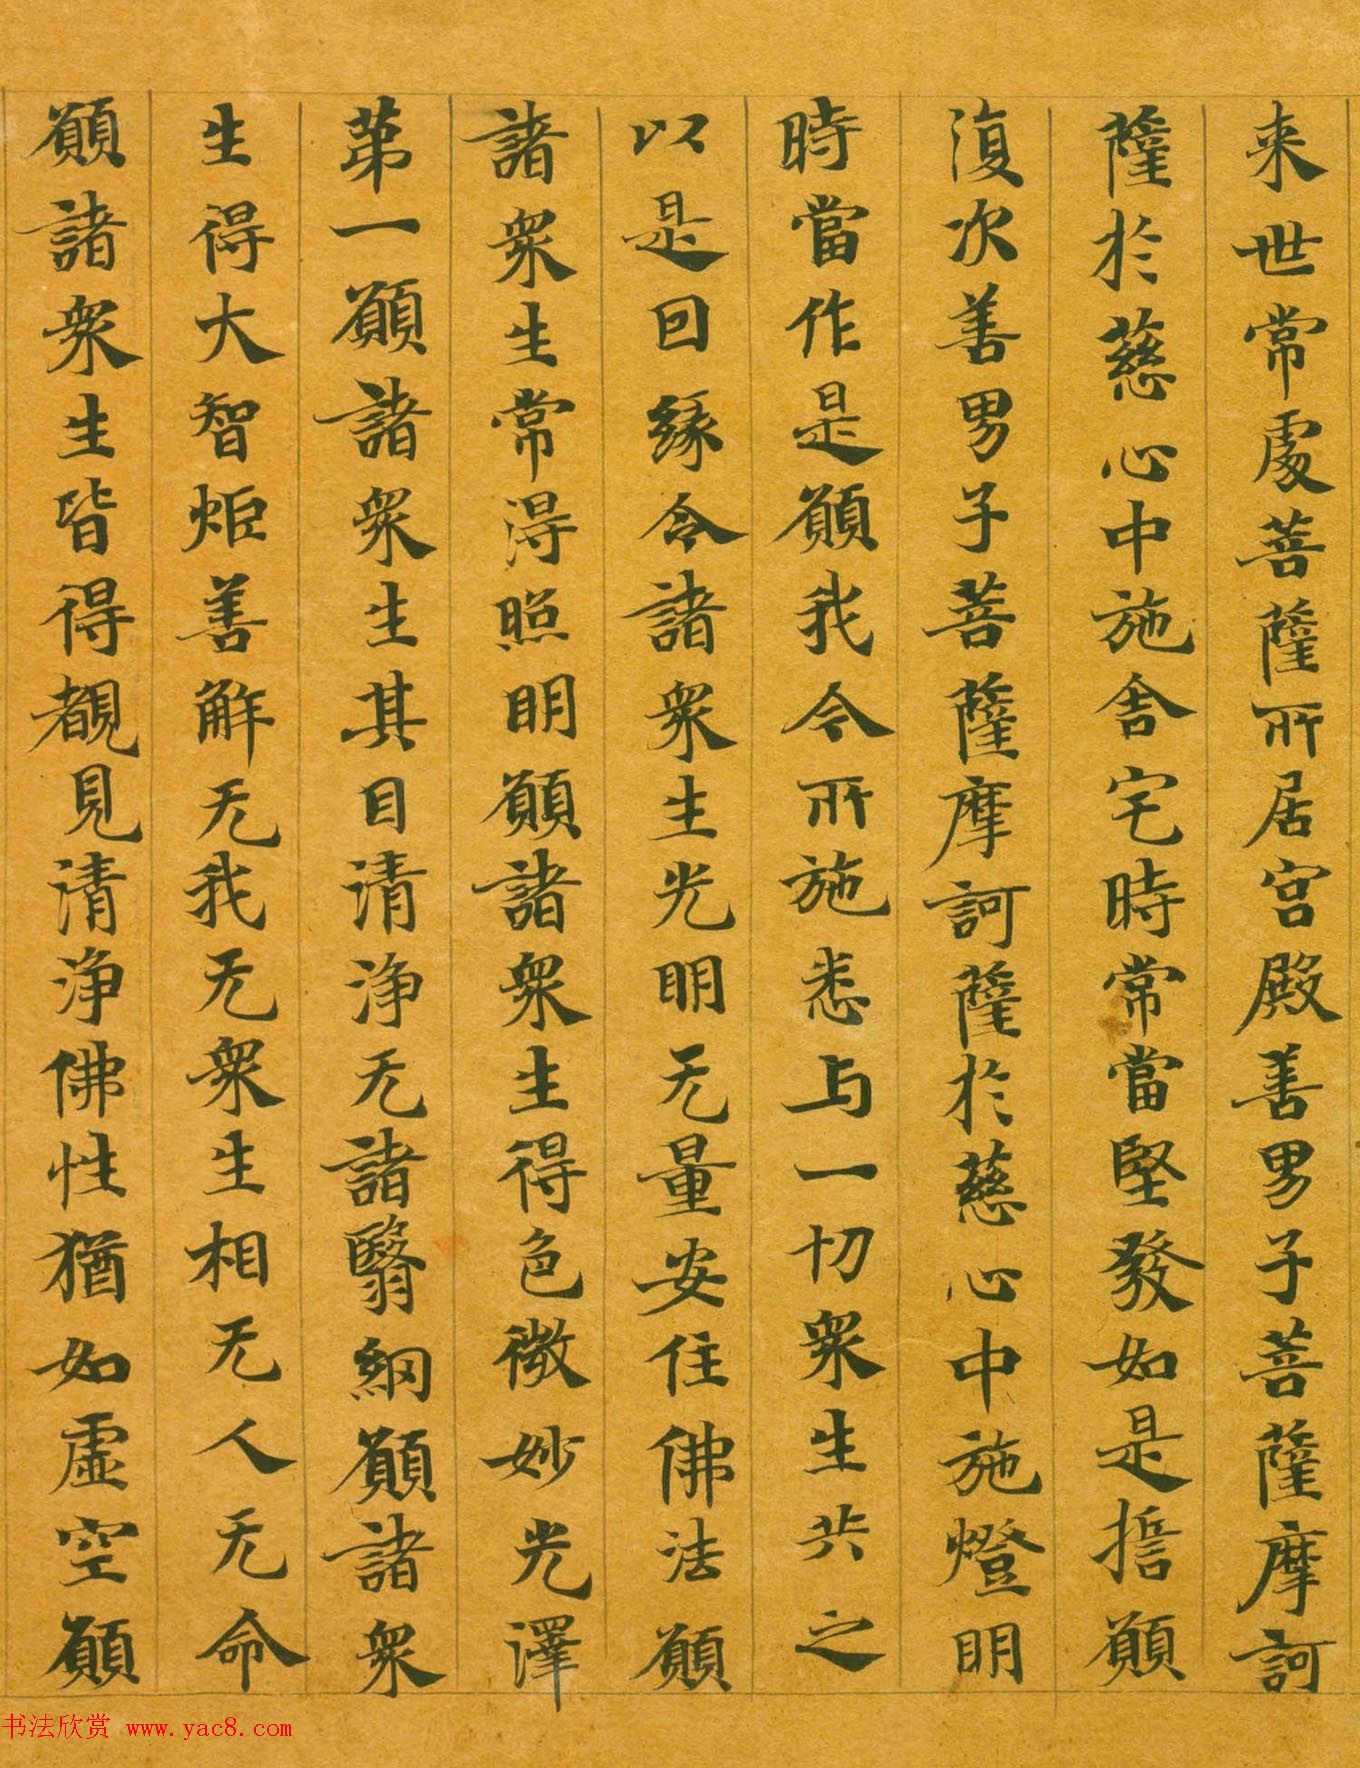 来世常處菩薩所居宮殿善男子菩薩摩訶
薩於慈心中施舍宅時常當堅發如是擔願
復次善男子菩薩摩訶薩於慈心中施燈明
時當作是願我今所施悉与一切眾生共之
以是回緣令諸眾生光明无量安住佛法願
諸眾生常得照明願諸眾生得色微妙光澤
苐一願諸眾生其目清淨无諸翳網願諸眾
生得大智炬善解无我无眾生相无人无命
願諸眾生皆得覩見清淨佛性猶如虛空願
书法欣赏 www.yac8.com